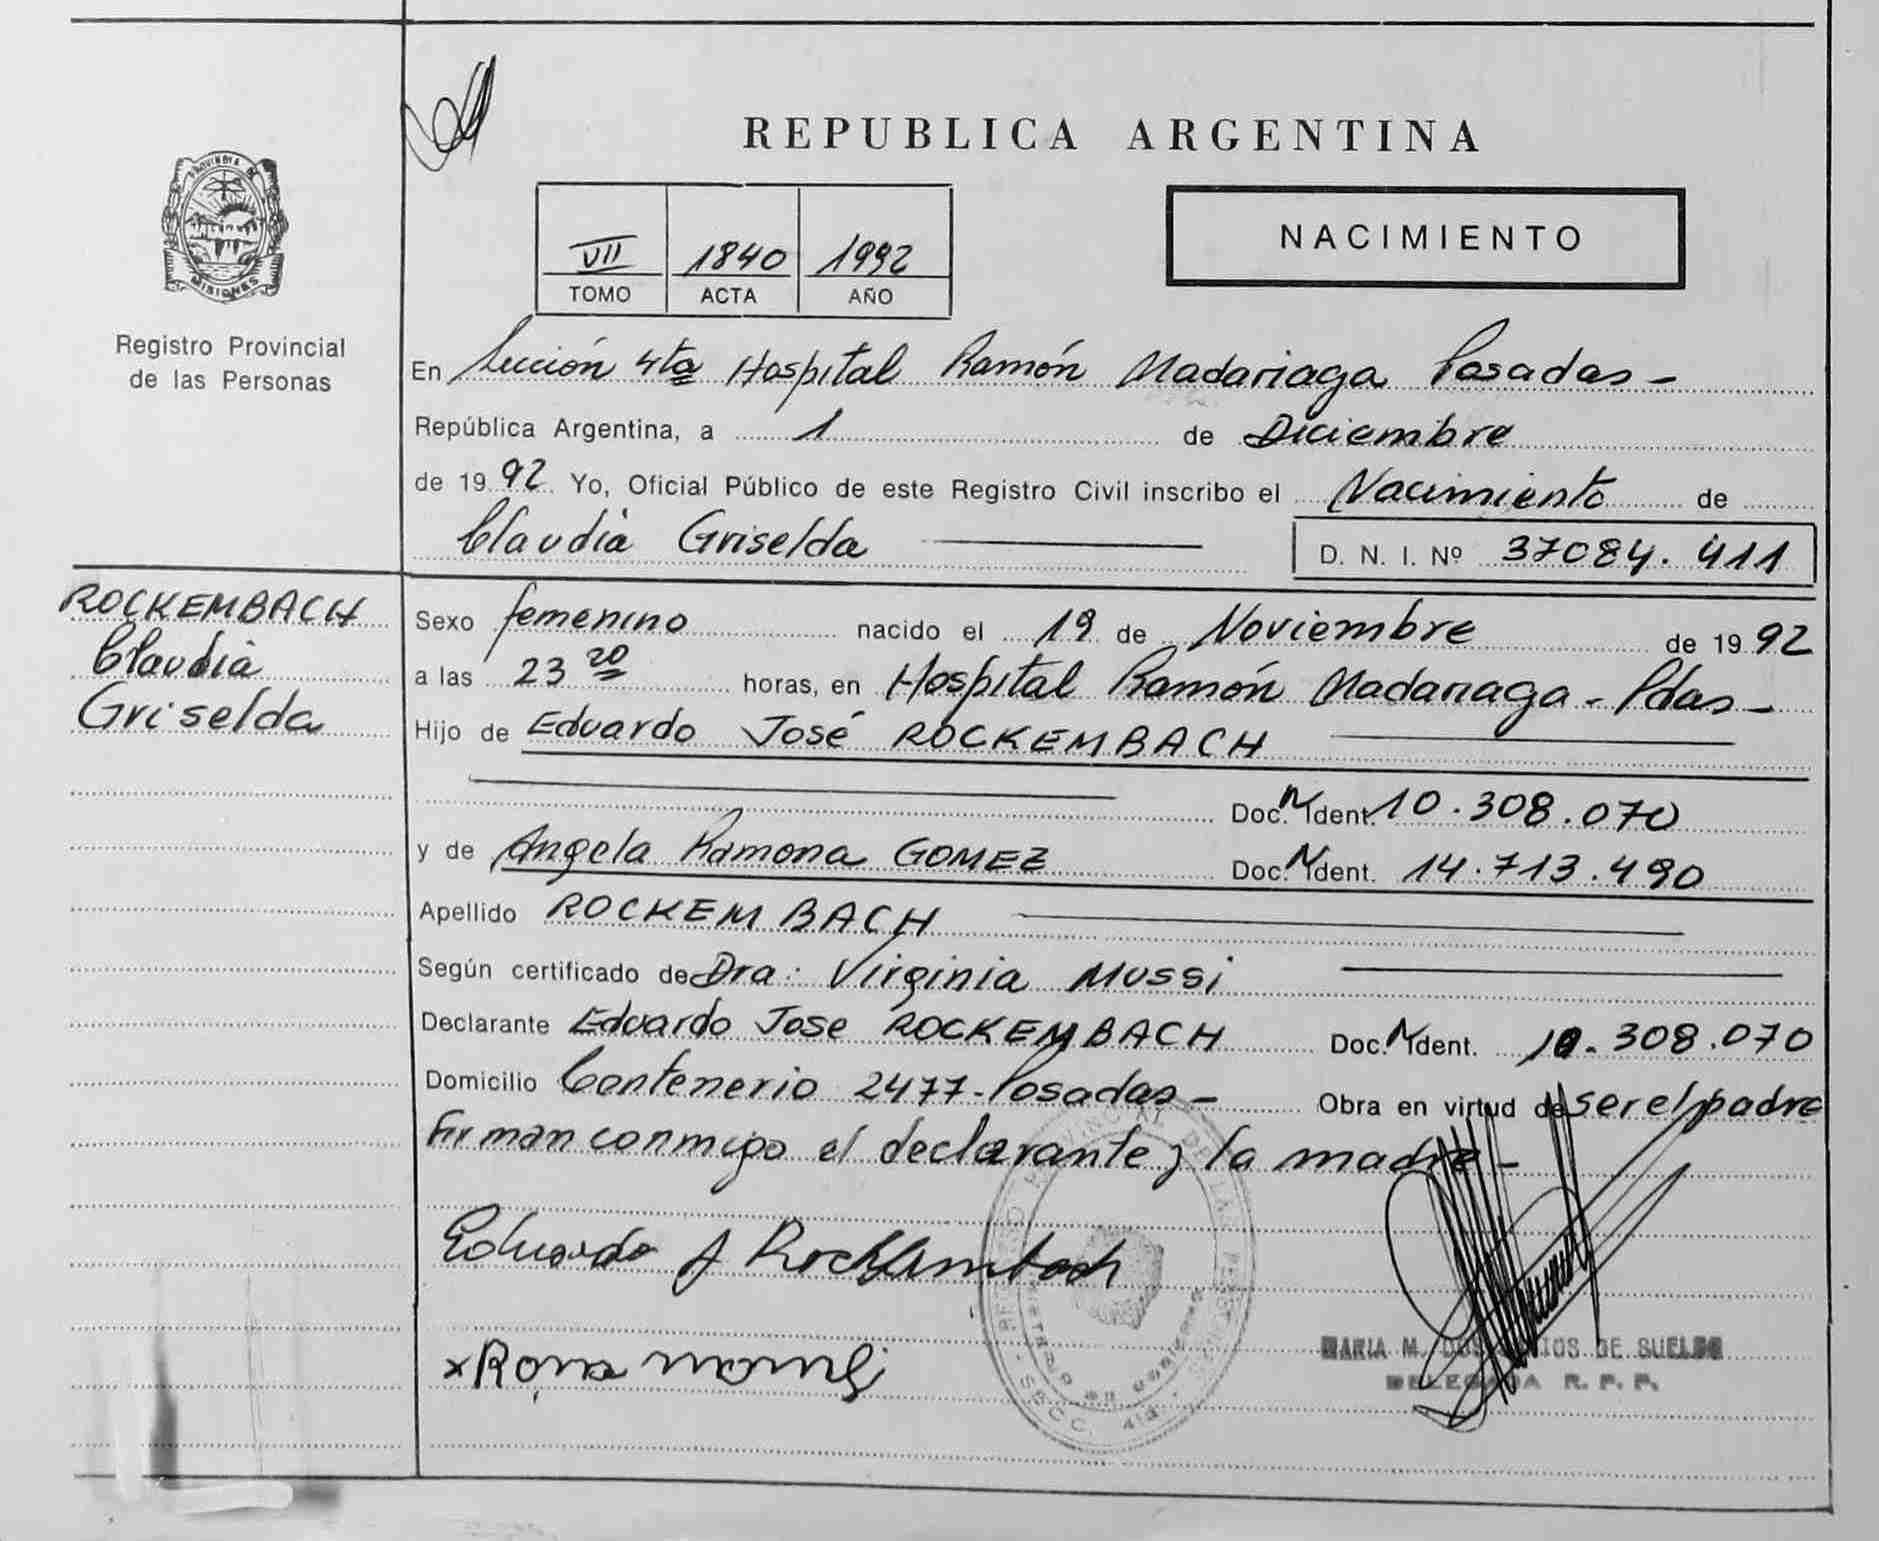 REPUBLICA ARGENTINA
PROVINCIA DE
MISIONES
Registro Provincial
de las Personas
VII 1840 1992
TOMO ACTA AÑO
NACIMIENTO
En Sección 4ta Hospital Ramón Madariaga Posadas -
República Argentina, a 1 de Diciembre
de 1992 Yo, Oficial Público de este Registro Civil inscribo el Nacimiento de
Claudia Griselda
D. N. I. Nº 37084.411
ROCKEMBACH
Claudia
Griselda
Sexo femenino nacido el 19 de Noviembre de 1992
a las 23 20 horas, en Hospital Ramón Madariaga - Pdas -
Hijo de Eduardo José ROCKEMBACH
Doc. N Ident. 10.308.070
y de Angela Ramona GOMEZ Doc. N Ident. 14.713.490
Apellido ROCKEMBACH
Según certificado de Dra: Virginia Mussi
Declarante Eduardo Jose ROCKEMBACH Doc. N Ident. 10.308.070
Domicilio Centenerio 2477 - Posadas - Obra en virtud de ser el padre
Firman conmigo el declarante y la madre -
Eduardo J Rockembach
MARIA M. DOS DE SUELDO
DELEGADA R. P. P.